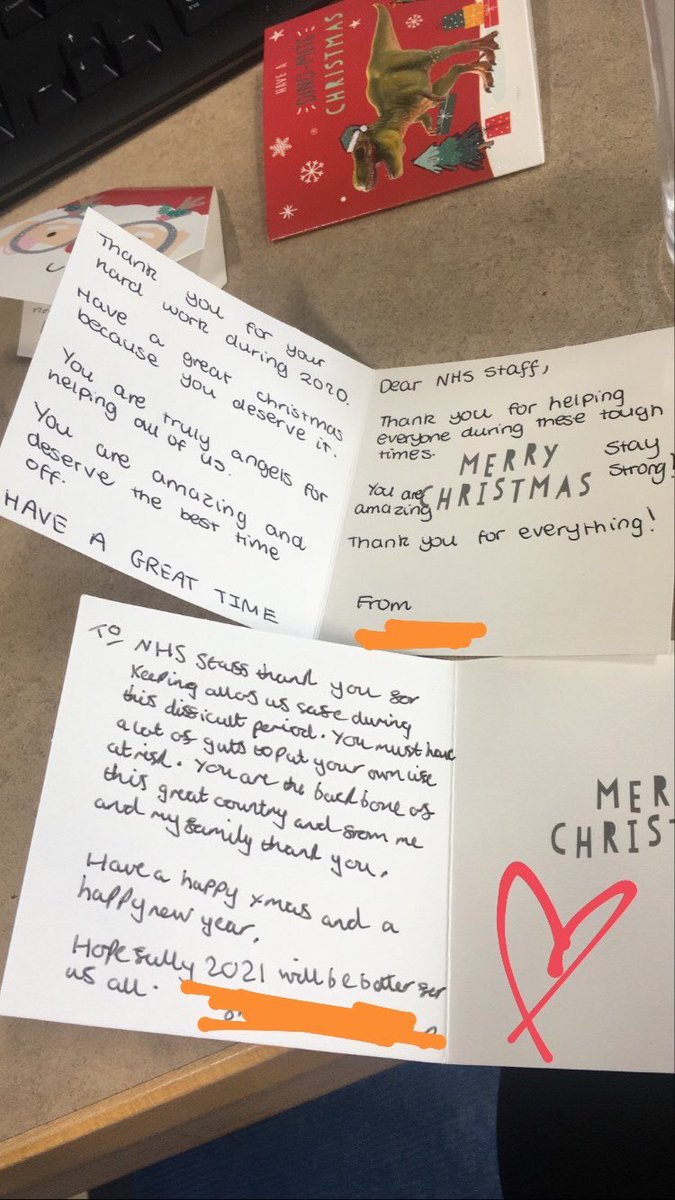 HAVE A
DINO-MITE
CHRISTMAS
Thank you for your
hard work during 2020.
Have a great christmas
because you deserve it.
You are truly angels for
helping all of us.
You are amazing and
deserve the best time
off.
HAVE A GREAT TIME
Dear NHS Staff,
Thank you for helping
everyone during these tough
times.
MERRY
CHRISTMAS
Stay
Strong!
You are
amazing
Thank you for everything!
From
To NHS Staff thank you for
keeping all of us safe during
this difficult period. You must have
a lot of guts to put your own life
at risk. You are the backbone of
this great country and from me
and my family thank you.
Have a happy xmas and a
happy new year.
Hopefully 2021 will be better for
us all.
MER
CHRIST